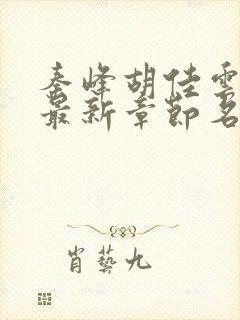 秦峰胡佳雲
最新章節名
肖藝九